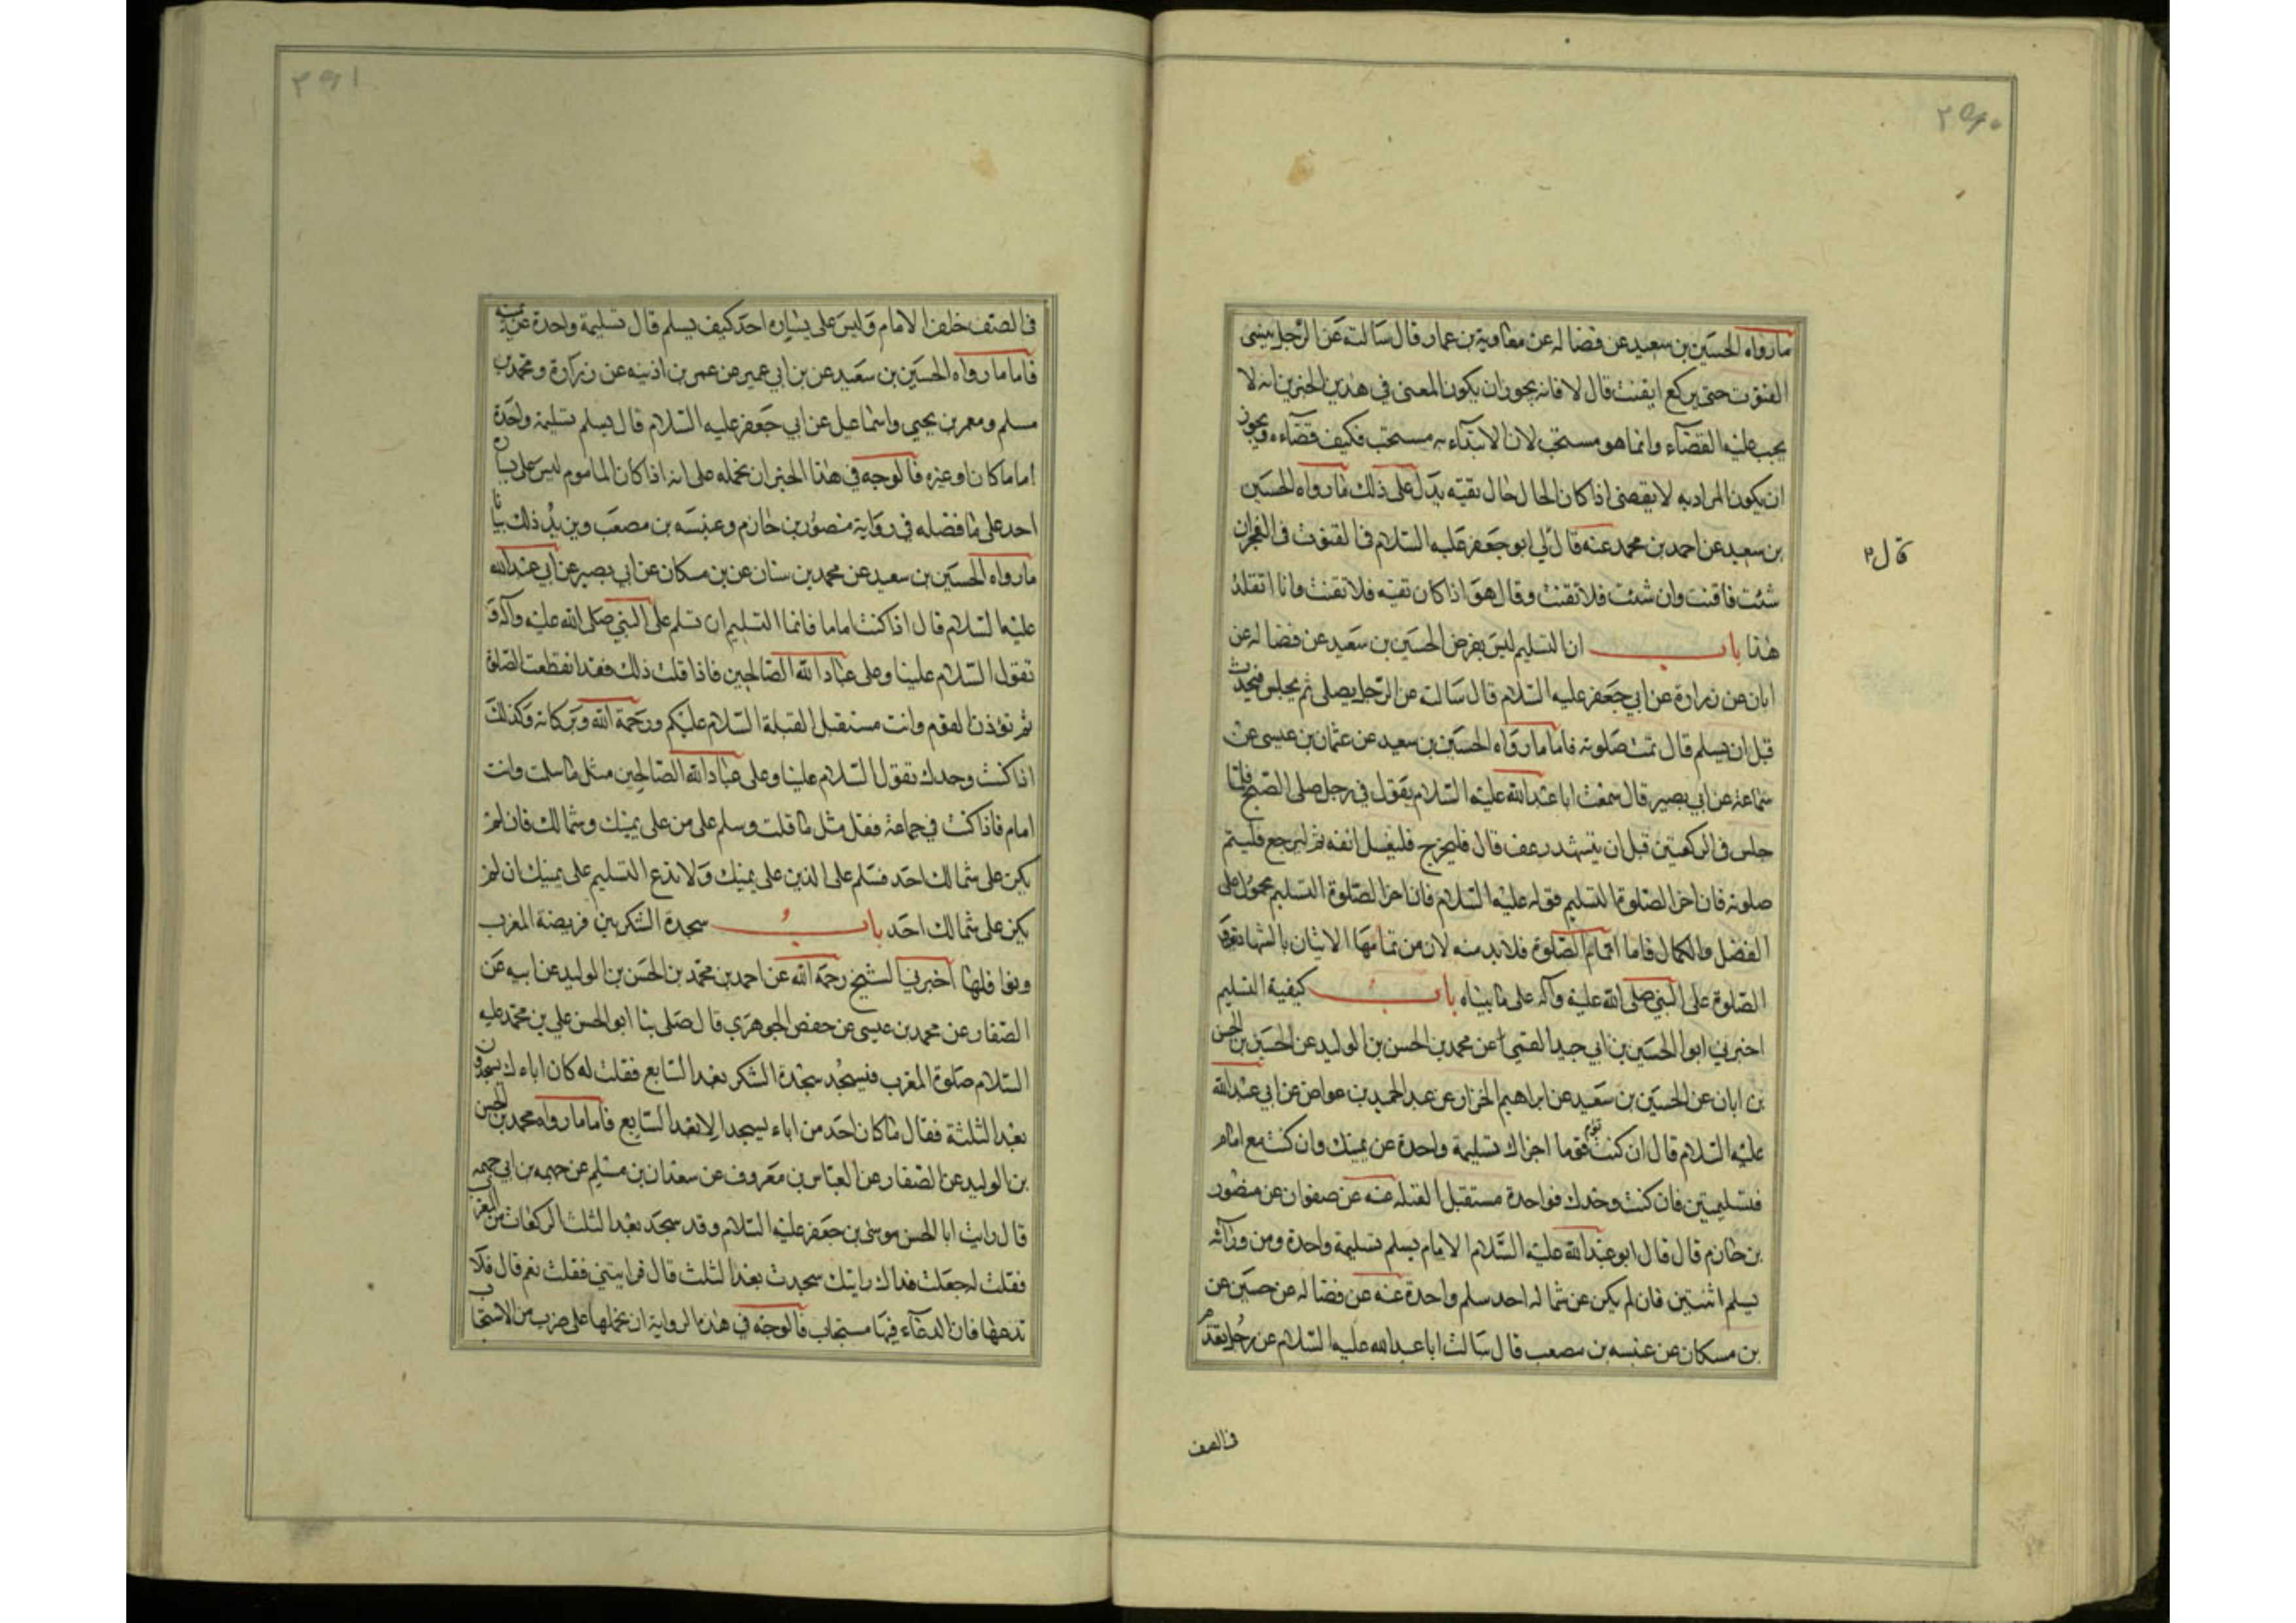 ٣٩٠
ما رواه الحسين بن سعيد عن فضاله عن معاوية بن عمار قال سالته عن الرجل ينسى
القنوت حتى يركع ايقنت قال لا فانه يجوز ان يكون المعنى في هذين الخبرين انه لا
يجب عليه القضاء وانما هو مستحب لان الابتداء به مستحب فكيف قضاءه ويجوز
ان يكون المراد به لا يقضى اذا كان الحال حال تقيه يدل على ذلك ما رواه الحسين
بن سعيد عن احمد بن محمد عنه قال لي ابو جعفر عليه السلام في القنوت في الفجر ان
قال
شئت فاقنت وان شئت فلا تقنت وقال هو اذا كان تقيه فلا تقنت وانا اتقلد
هذا باب ان التسليم ليس بفرض الحسين بن سعيد عن فضاله عن
ابان عن زرارة عن ابي جعفر عليه السلام قال سالته عن الرجل يصلى ثم يجلس فيحدث
قبل ان يسلم قال تمت صلوته فاما ما رواه الحسين بن سعيد عن عثمان بن عيسى عن
سماعة عن ابي بصير قال سمعت ابا عبدالله عليه السلام يقول في رجل صلى الصبح فلما
جلس في الركعتين قبل ان يتشهد رعف قال فليخرج فليغسل انفه ثم ليرجع فليتم
صلوته فان اخر الصلوة التسليم فقوله عليه السلام فان اخر الصلوة التسليم محمول على
الفضل والكمال فاما اتمام الصلوة فلا بد منه لان من تمامها الاتيان بالشهادتين و
الصلوة على النبي صلى الله عليه وآله على ما بيناه باب كيفية التسليم
اخبرني ابو الحسين بن ابي جيد القمي عن محمد بن الحسن بن الوليد عن الحسين بن الحسن
بن ابان عن الحسين بن سعيد عن ابراهيم الخزاز عن عبد الحميد بن عواض عن ابي عبدالله
عليه السلام قال ان كنت تؤم قوما اجزاك تسليمة واحدة عن يمينك وان كنت مع امام
فتسليمتين فان كنت وحدك فواحدة مستقبل القبله عنه عن صفوان عن منصور
بن حازم قال قال ابو عبدالله عليه السلام الامام يسلم تسليمة واحدة ومن ورائه
يسلم اثنتين فان لم يكن عن شماله احد سلم واحدة عنه عن فضاله عن حسين عن
بن مسكان عن عنبسه بن مصعب قال سالت ابا عبدالله عليه السلام عن رجل يقدم
في الصف
٣٩١
في الصف خلف الامام وليس على يساره احد كيف يسلم قال تسليمة واحدة عن يمينه
فاما ما رواه الحسين بن سعيد عن بن ابي عمير عن عمر بن اذنيه عن زرارة ومحمد بن
مسلم ومعمر بن يحيى واسماعيل عن ابي جعفر عليه السلام قال يسلم تسليمة واحدة
اماما كان او غيره فالوجه في هذا الخبر ان نحمله على انه اذا كان الماموم ليس على يساره
احد على ما فضله في رواية منصور بن حازم وعنبسه بن مصعب ويزيد ذلك بيانا
ما رواه الحسين بن سعيد عن محمد بن سنان عن بن مسكان عن ابي بصير عن ابي عبدالله
عليه السلام قال اذا كنت اماما فانما التسليم ان تسلم على النبي صلى الله عليه وآله و
تقول السلام علينا وعلى عباد الله الصالحين فاذا قلت ذلك فقد انقطعت الصلوة
ثم تؤذن القوم وانت مستقبل القبلة السلام عليكم ورحمة الله وبركاته وكذلك
اذا كنت وحدك تقول السلام علينا وعلى عباد الله الصالحين مثل ما سلمت وانت
امام فاذا كنت في جماعة فقل مثل ما قلت وسلم على من على يمينك وشمالك فان لم
يكن على شمالك احد فسلم على الذين على يمينك ولا تدع التسليم على يمينك ان لم
يكن على شمالك احد باب سجدة الشكر بين فريضة المغرب
ونوافلها اخبرني الشيخ رحمة الله عن احمد بن محمد بن الحسن بن الوليد عن ابيه عن
الصفار عن محمد بن عيسى عن حفص الجوهري قال صلى بنا ابو الحسن علي بن محمد عليه
السلام صلوة المغرب فسجد سجدة الشكر بعد السابع فقلت له كان اباءك يسجدون
بعد الثلثة فقال ما كان احد من اباء يسجد الا بعد السابع فاما ما رواه محمد بن الحسن
بن الوليد عن الصفار عن العباس بن معروف عن سعدان بن مسلم عن جهمه بن ابي جهمه
قال رايت ابا الحسن موسى بن جعفر عليه السلام وقد سجد بعد الثلث الركعات من المغرب
فقلت له جعلت فداك رايتك سجدت بعد الثلث قال فرايتني فقلت نعم قال فلا
تدعها فان الدعاء فيها مستجاب فالوجه في هذه الرواية ان نحملها على ضرب من الاستحباب